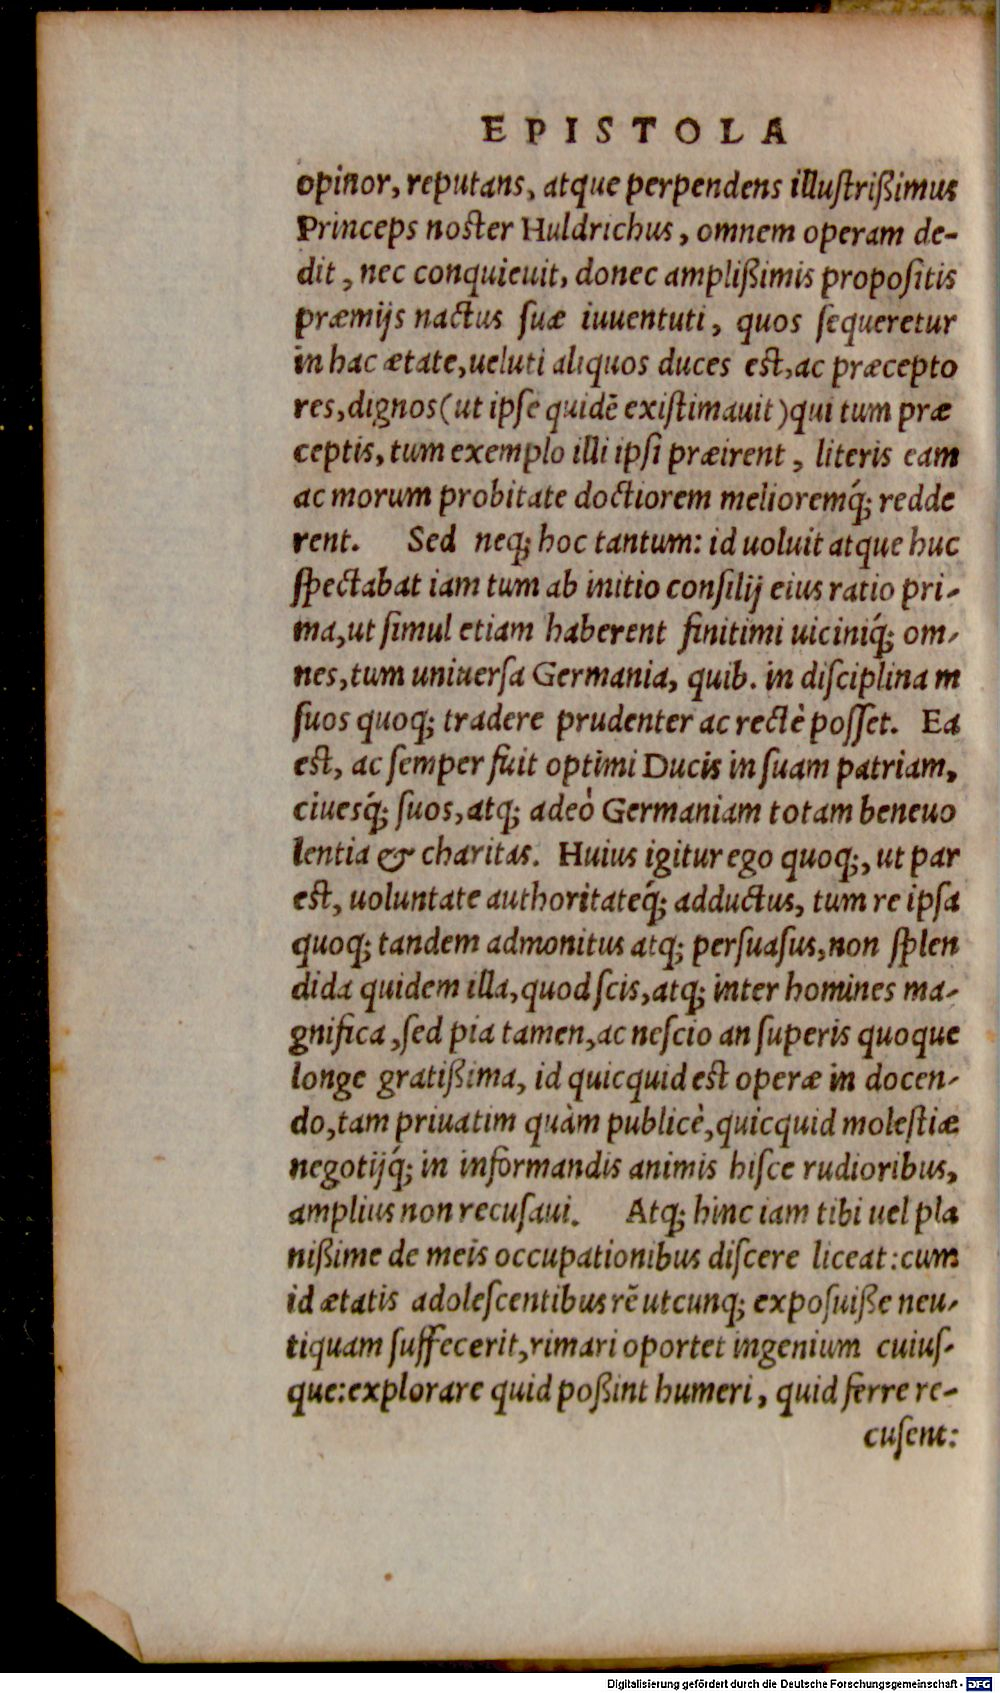 EPISTOLA
opinor, reputans, atque perpendens illuſtrißimus
Princeps noſter Huldrichus, omnem operam de-
dit, nec conquieuit, donec amplißimis propoſitis
præmijs nactus ſuæ iuuentuti, quos ſequeretur
in hac ætate, ueluti aliquos duces eſt, ac præcepto
res, dignos (ut ipſe quidē exiſtimauit) qui tum præ
ceptis, tum exemplo illi ipſi præirent, literis eam
ac morum probitate doctiorem melioremq́; redde
rent. Sed neq; hoc tantum: id uoluit atque huc
ſpectabat iam tum ab initio conſilij eius ratio pri-
ma, ut ſimul etiam haberent finitimi uiciniq́; om-
nes, tum uniuerſa Germania, quib. in diſciplinam
ſuos quoq; tradere prudenter ac rectè poſſet. Ea
eſt, ac ſemper fuit optimi Ducis in ſuam patriam,
ciuesq́; ſuos, atq; adeò Germaniam totam beneuo
lentia & charitas. Huius igitur ego quoq;, ut par
eſt, uoluntate authoritateq́; adductus, tum re ipſa
quoq; tandem admonitus atq; perſuaſus, non ſplen
dida quidem illa, quod ſcis, atq; inter homines ma-
gnifica, ſed pia tamen, ac neſcio an ſuperis quoque
longe gratißima, id quicquid eſt operæ in docen-
do, tam priuatim quàm publicè, quicquid moleſtiæ
negotijq́; in informandis animis hiſce rudioribus,
amplius non recuſaui. Atq; hinc iam tibi uel pla
nißime de meis occupationibus diſcere liceat: cum
id ætatis adoleſcentibus rē utcunq; expoſuiße neu-
tiquam ſuffecerit, rimari oportet ingenium cuiuſ-
que: explorare quid poßint humeri, quid ferre re-
cuſent:
Digitalisierung gefördert durch die Deutsche Forschungsgemeinschaft - DFG